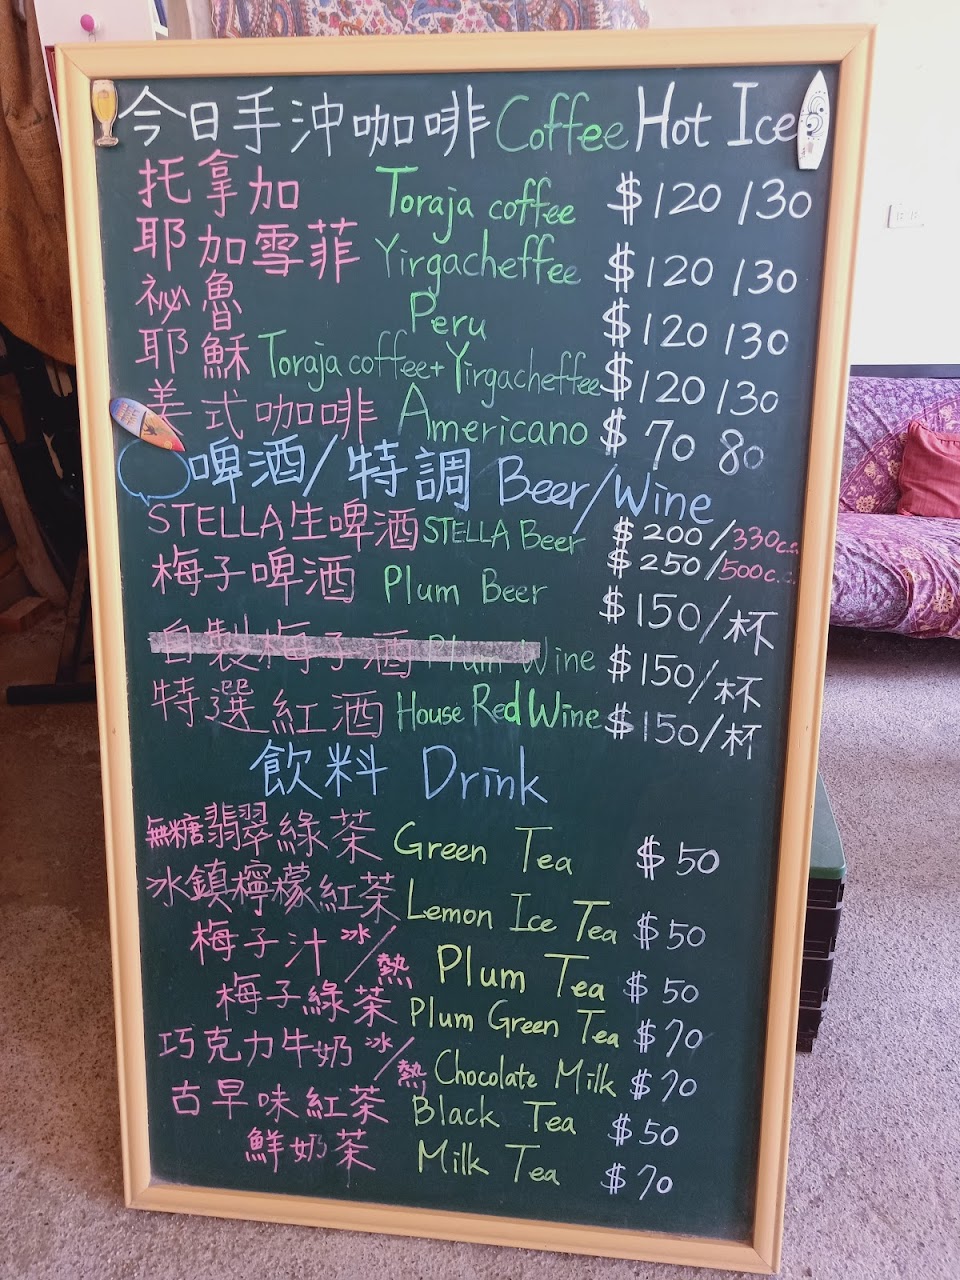 今日手沖咖啡 Coffee Hot Ice
托拿加 Toraja coffee $120 130
耶加雪菲 Yirgacheffee $120 130
祕魯 Peru $120 130
耶穌 Toraja coffee+Yirgacheffee $120 130
美式咖啡 Americano $70 80
啤酒/特調 Beer/Wine
STELLA生啤酒 STELLA Beer $200/330c.c.
$250/500c.c.
梅子啤酒 Plum Beer $150/杯
自製梅子酒 Plum Wine $150/杯
特選紅酒 House Red Wine $150/杯
飲料 Drink
無糖翡翠綠茶 Green Tea $50
冰鎮檸檬紅茶 Lemon Ice Tea $50
梅子汁 冰/熱 Plum Tea $50
梅子綠茶 Plum Green Tea $70
巧克力牛奶 冰/熱 Chocolate Milk $70
古早味紅茶 Black Tea $50
鮮奶茶 Milk Tea $70